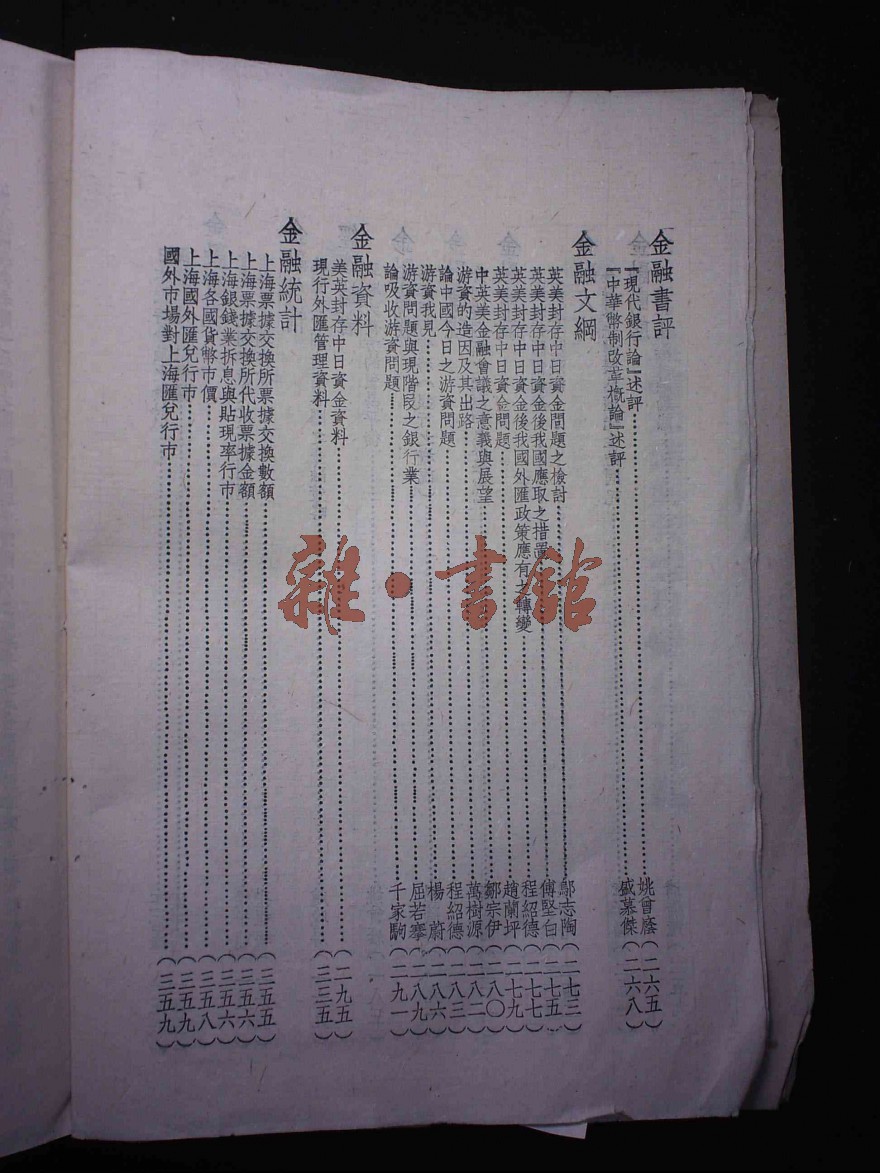 金融書評
『現代銀行論』述評……姚曾廕(二六五)
『中華幣制改革概論』述評……盛慕傑(二六八)
金融文綱
英美封存中日資金問題之檢討……鄢志陶(二七三)
英美封存中日資金後我國應取之措置……傅堅白(二七五)
英美封存中日資金後我國外匯政策應有之轉變……程紹德(二七七)
英美封存中日資金問題……趙蘭坪(二七九)
中英美金融會議之意義與展望……鄒宗伊(二八〇)
游資的造因及其出路……萬樹源(二八二)
論中國今日之游資問題……程紹德(二八三)
游資我見……楊蔚(二八六)
游資問題與現階段之銀行業……屈若搴(二八九)
論吸收游資問題……千家駒(二九一)
金融資料
美英封存中日資金資料……(二九五)
現行外匯管理資料……(三三五)
金融統計
上海票據交換所票據交換數額……(三五五)
上海票據交換所代收票據金額……(三五六)
上海銀錢業拆息與貼現率行市……(三五六)
上海各國貨幣市價……(三五八)
上海國外匯兌行市……(三五九)
國外市場對上海匯兌行市……(三五九)
雜·書館